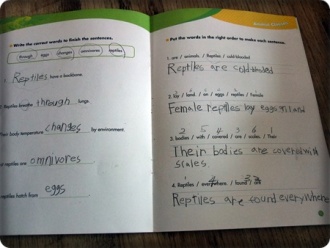 Write the correct words to finish the sentences.
through eggs changes omnivores reptiles
Reptiles have a backbone.
Reptiles breathe through lungs.
Their body temperature changes by environment.
reptiles are omnivores
reptiles hatch from eggs
Put the words in the right order to make each sentence.
1. are / animals, / Reptiles / cold-blooded
Reptiles are cold-blooded
2. lay / land / on / eggs / reptiles / Female
Female reptiles lay eggs
3. bodies / with / covered / are / scales / Their
Their bodies are covered with
scales
4. Reptiles / everywhere / found /
Reptiles are found everywhere